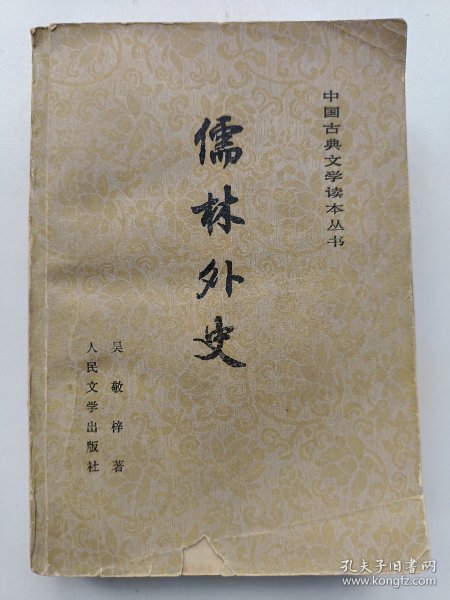 中国古典文学读本丛书
儒林外史
吴敬梓著
人民文学出版社
孔夫子旧书网
www.kongfz.com